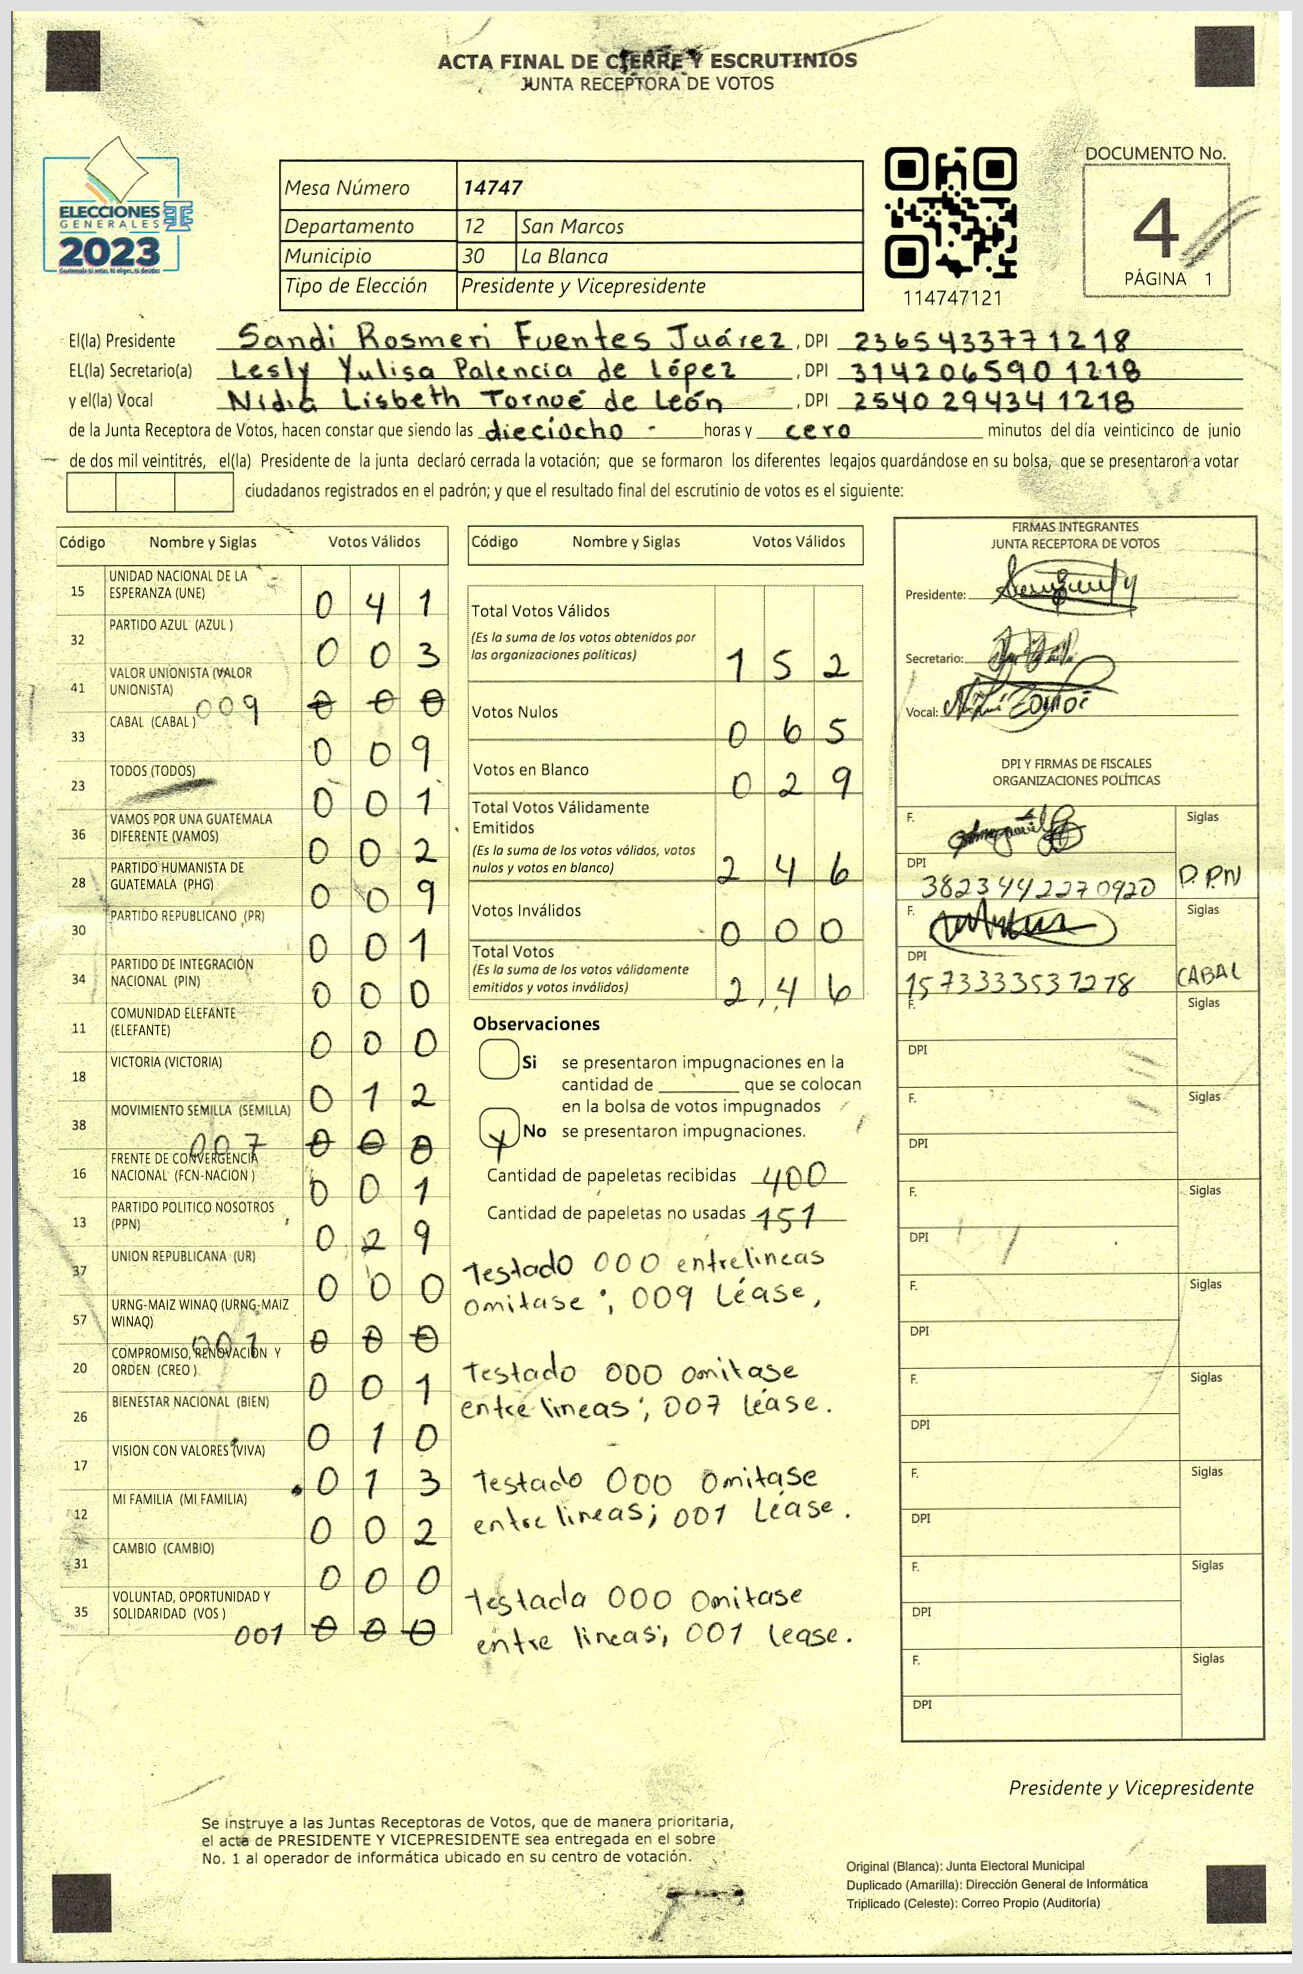 ACTA FINAL DE CIERRE Y ESCRUTINIOS
JUNTA RECEPTORA DE VOTOS
ELECCIONES
GENERALES
2023
Mesa Número 14747
Departamento 12 San Marcos
Municipio 30 La Blanca
Tipo de Elección Presidente y Vicepresidente
114747121
DOCUMENTO No.
4
PÁGINA 1
El(la) Presidente Sandi Rosmeri Fuentes Juárez, DPI 2365433771218
EL(la) Secretario(a) Lesly Yulisa Palencia de López, DPI 3142065901218
y el(la) Vocal Nidia Lisbeth Tornoé de León, DPI 2540294341218
de la Junta Receptora de Votos, hacen constar que siendo las dieciocho - horas y cero minutos del día veinticinco de junio
de dos mil veintitrés, el(la) Presidente de la junta declaró cerrada la votación; que se formaron los diferentes legajos quardándose en su bolsa, que se presentaron a votar
ciudadanos registrados en el padrón; y que el resultado final del escrutinio de votos es el siguiente:
Código Nombre y Siglas Votos Válidos
15 UNIDAD NACIONAL DE LA ESPERANZA (UNE) 0 4 1
32 PARTIDO AZUL (AZUL ) 0 0 3
41 VALOR UNIONISTA (VALOR UNIONISTA) 009 0 0 0
33 CABAL (CABAL ) 0 0 9
23 TODOS (TODOS) 0 0 1
36 VAMOS POR UNA GUATEMALA DIFERENTE (VAMOS) 0 0 2
28 PARTIDO HUMANISTA DE GUATEMALA (PHG) 0 0 9
30 PARTIDO REPUBLICANO (PR) 0 0 1
34 PARTIDO DE INTEGRACIÓN NACIONAL (PIN) 0 0 0
11 COMUNIDAD ELEFANTE (ELEFANTE) 0 0 0
18 VICTORIA (VICTORIA) 0 1 2
38 MOVIMIENTO SEMILLA (SEMILLA) 007 0 0 0
16 FRENTE DE CONVERGENCIA NACIONAL (FCN-NACION ) 0 0 1
13 PARTIDO POLITICO NOSOTROS (PPN) 0 2 9
37 UNION REPUBLICANA (UR) 0 0 0
57 URNG-MAIZ WINAQ (URNG-MAIZ WINAQ) 001 0 0 0
20 COMPROMISO, RENOVACIÓN Y ORDEN (CREO ) 0 0 1
26 BIENESTAR NACIONAL (BIEN) 0 1 0
17 VISION CON VALORES (VIVA) 0 1 3
12 MI FAMILIA (MI FAMILIA) 0 0 2
31 CAMBIO (CAMBIO) 0 0 0
35 VOLUNTAD, OPORTUNIDAD Y SOLIDARIDAD (VOS ) 001 0 0 0
Código Nombre y Siglas Votos Válidos
Total Votos Válidos
(Es la suma de los votos obtenidos por
las organizaciones políticas) 1 5 2
Votos Nulos 0 6 5
Votos en Blanco 0 2 9
Total Votos Válidamente
Emitidos
(Es la suma de los votos válidos, votos
nulos y votos en blanco) 2 4 6
Votos Inválidos 0 0 0
Total Votos
(Es la suma de los votos válidamente
emitidos y votos inválidos) 2 4 6
Observaciones
Si se presentaron impugnaciones en la
cantidad de ________ que se colocan
en la bolsa de votos impugnados
No se presentaron impugnaciones.
Cantidad de papeletas recibidas 400
Cantidad de papeletas no usadas 151
Testado 000 entrelineas
omitase ; 009 Léase,
Testado 000 omitase
entre lineas; 007 léase.
Testado 000 omitase
entre lineas; 001 Léase.
Testada 000 omitase
entre lineas; 001 lease.
FIRMAS INTEGRANTES
JUNTA RECEPTORA DE VOTOS
Presidente:
Secretario:
Vocal:
DPI Y FIRMAS DE FISCALES
ORGANIZACIONES POLÍTICAS
F. Siglas
DPI 3823442270920 P.P.N
F. Siglas
DPI 1573333537278 CABAL
F. Siglas
DPI
F. Siglas
DPI
F. Siglas
DPI
F. Siglas
DPI
F. Siglas
DPI
F. Siglas
DPI
F. Siglas
DPI
F. Siglas
DPI
Presidente y Vicepresidente
Se instruye a las Juntas Receptoras de Votos, que de manera prioritaria,
el acta de PRESIDENTE Y VICEPRESIDENTE sea entregada en el sobre
No. 1 al operador de informática ubicado en su centro de votación.
Original (Blanca): Junta Electoral Municipal
Duplicado (Amarilla): Dirección General de Informática
Triplicado (Celeste): Correo Propio (Auditoría)